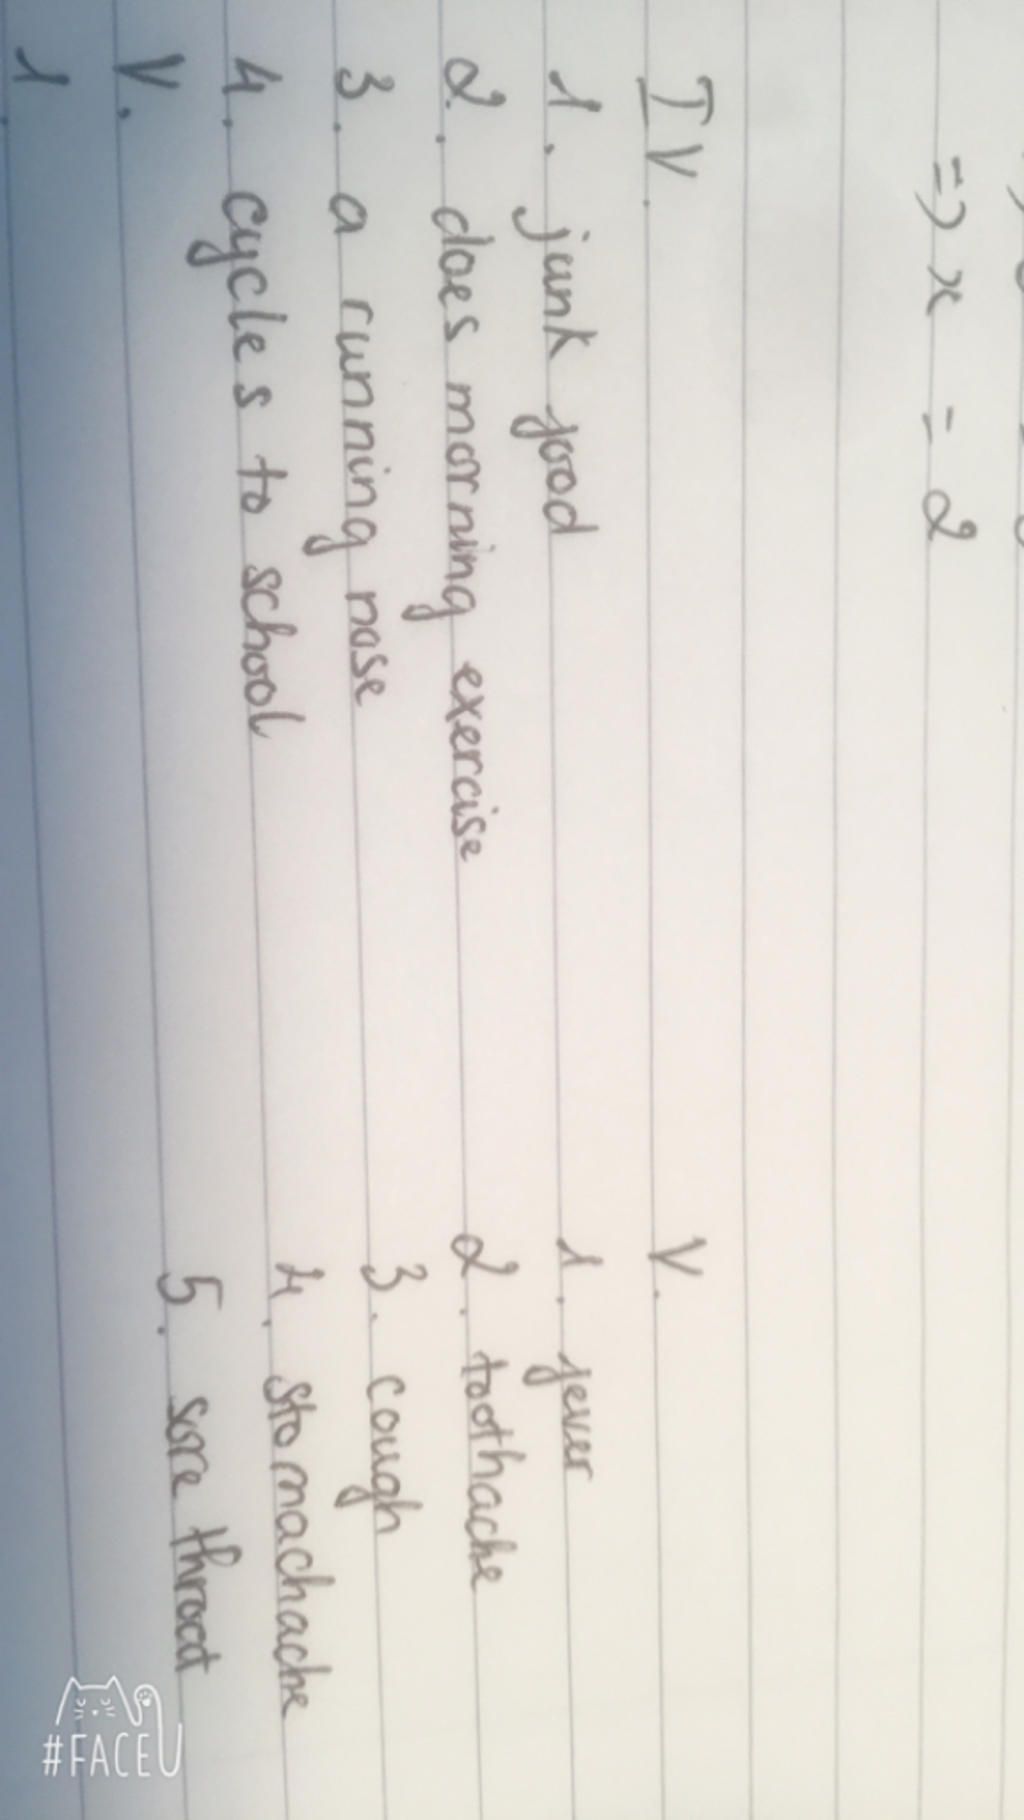 => x = 2
IV.
1. junk food
2. does morning exercise
3. a running nose
4. cycles to school
V.
1
V.
1. fever
2. toothache
3. cough
4. stomachache
5. sore throat
#FACEU